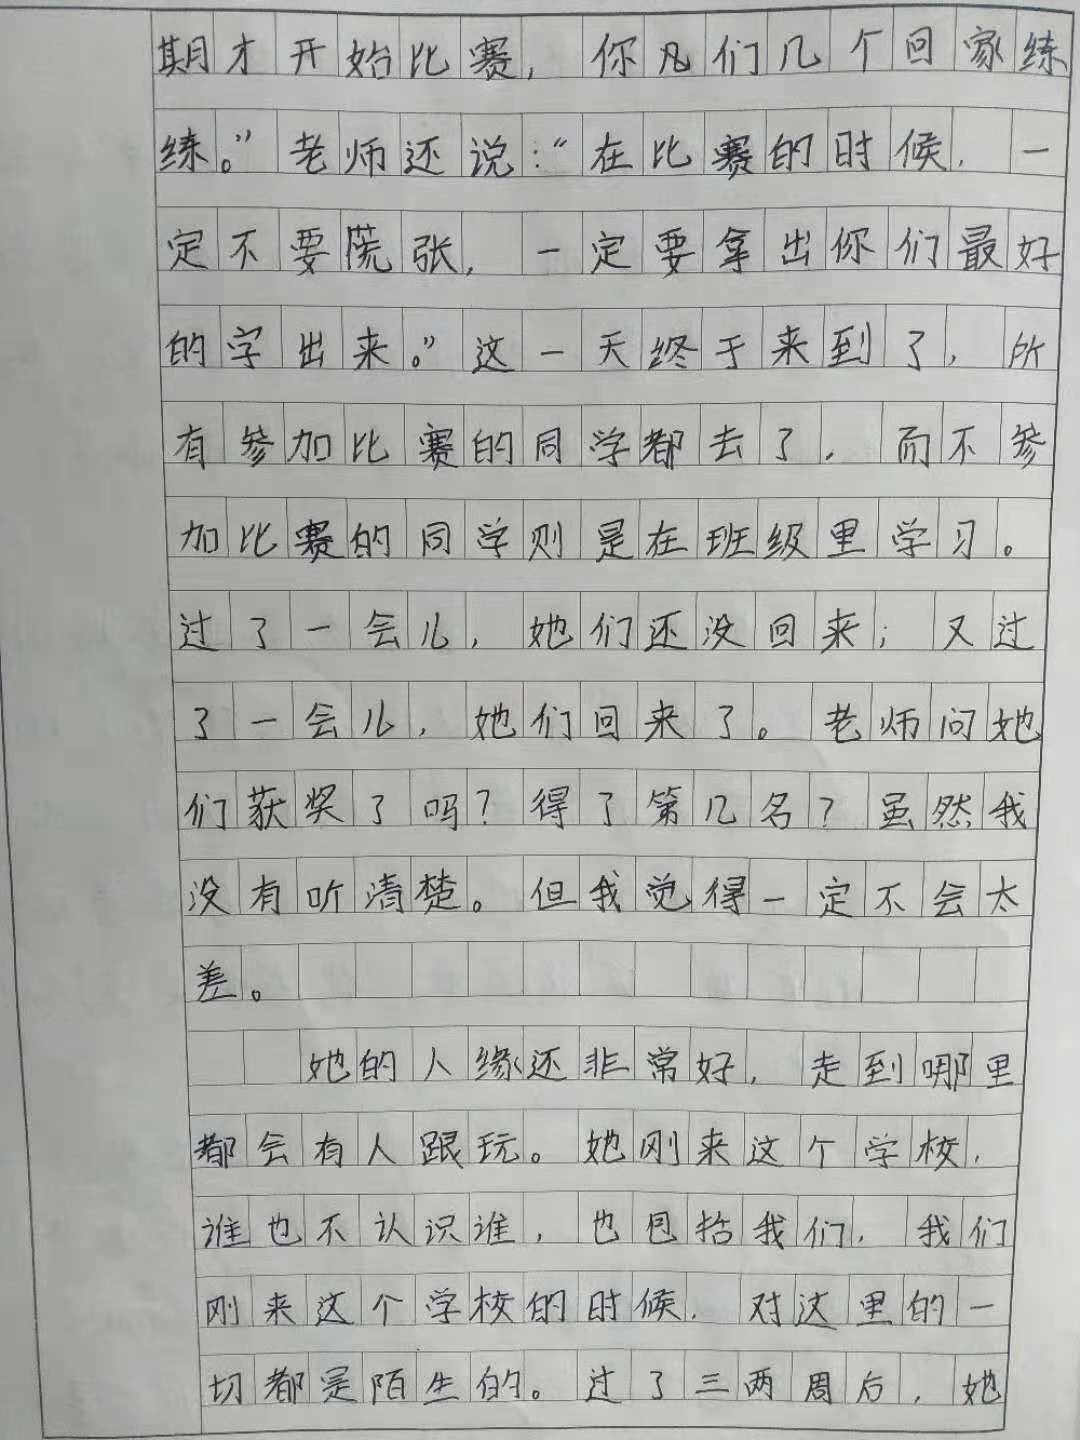 期才开始比赛，你凡们几个回家练
练。”老师还说：“在比赛的时候，一
定不要慌张，一定要拿出你们最好
的字出来。”这一天终于来到了，所
有参加比赛的同学都去了，而不参
加比赛的同学则是在班级里学习。
过了一会儿，她们还没回来；又过
了一会儿，她们回来了。老师问她
们获奖了吗？得了第几名？虽然我
没有听清楚。但我觉得一定不会太
差。
她的人缘还非常好，走到哪里
都会有人跟玩。她刚来这个学校，
谁也不认识谁，也包括我们，我们
刚来这个学校的时候，对这里的一
切都是陌生的。过了三两周后，她